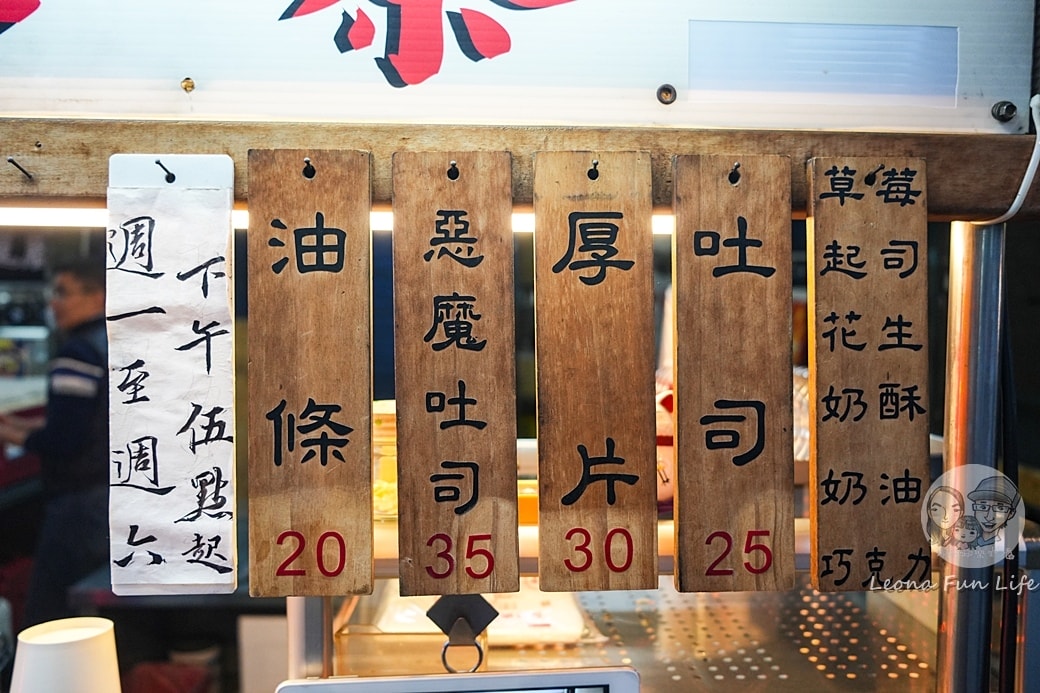 週一至週六
下午伍點起
油條
20
惡魔吐司
35
厚片
30
吐司
25
草莓
起司
花生
奶酥
奶油
巧克力
Leona Fun Life